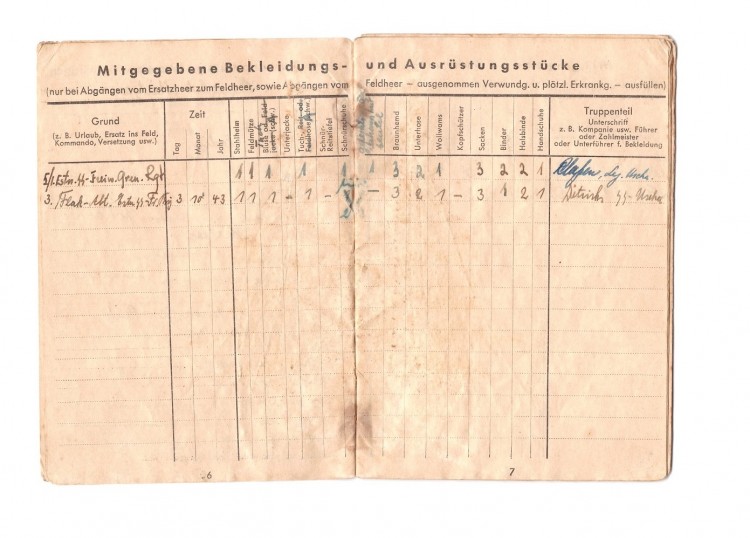 Mitgegebene Bekleidungs- und Ausrüstungsstücke
(nur bei Abgängen vom Ersatzheer zum Feldheer, sowie Abgängen vom Feldheer – ausgenommen Verwundg. u. plötzl. Erkrankg. – ausfüllen)
Grund
(z. B. Urlaub, Ersatz ins Feld,
Kommando, Versetzung usw.)
Zeit
Tag
Monat
Jahr
Stahlhelm
Feldmütze
Unterjacke
Schnür-
Braunhemd
Unterhose
Wollwams
Kopfschützer
Socken
Binder
Halsbinde
Handschuhe
Truppenteil
Unterschrift
z. B. Kompanie usw. Führer
oder Zahlmeister
oder Unterführer f. Bekleidung
5/1. Estn. SS-Freiw. Gren. Rgt 1 1 1 1 1 3 2 1 3 2 2 1
3. /Flak-Abt. Estn. SS-Fr. 3 10 43 1 1 1 – 1 – – 3 2 1 – 3 1 2 1
6
7